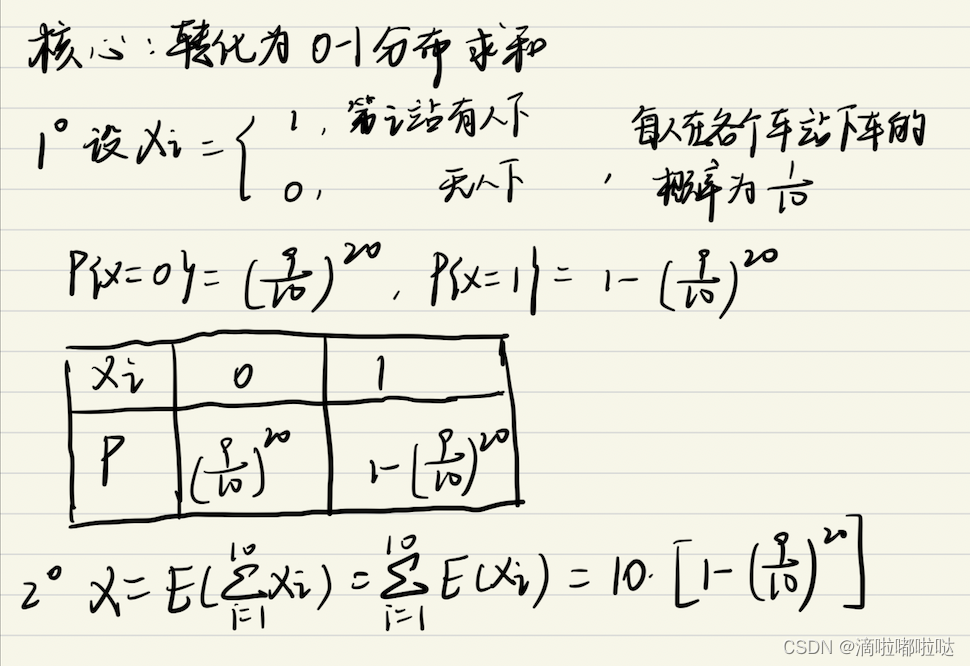 核心：转化为 0-1分布求和
1° 设 Xi = { 1, 第i站有人下
0, 无人下 , 每人在各个车站下车的概率为 1/10
P{X=0} = (9/10)^20 , P{X=1} = 1 - (9/10)^20
Xi 0 1
P (9/10)^20 1-(9/10)^20
2° X = E(∑_{i=1}^{10} Xi) = ∑_{i=1}^{10} E(Xi) = 10·[1-(9/10)^20]
CSDN @滴啦嘟啦哒